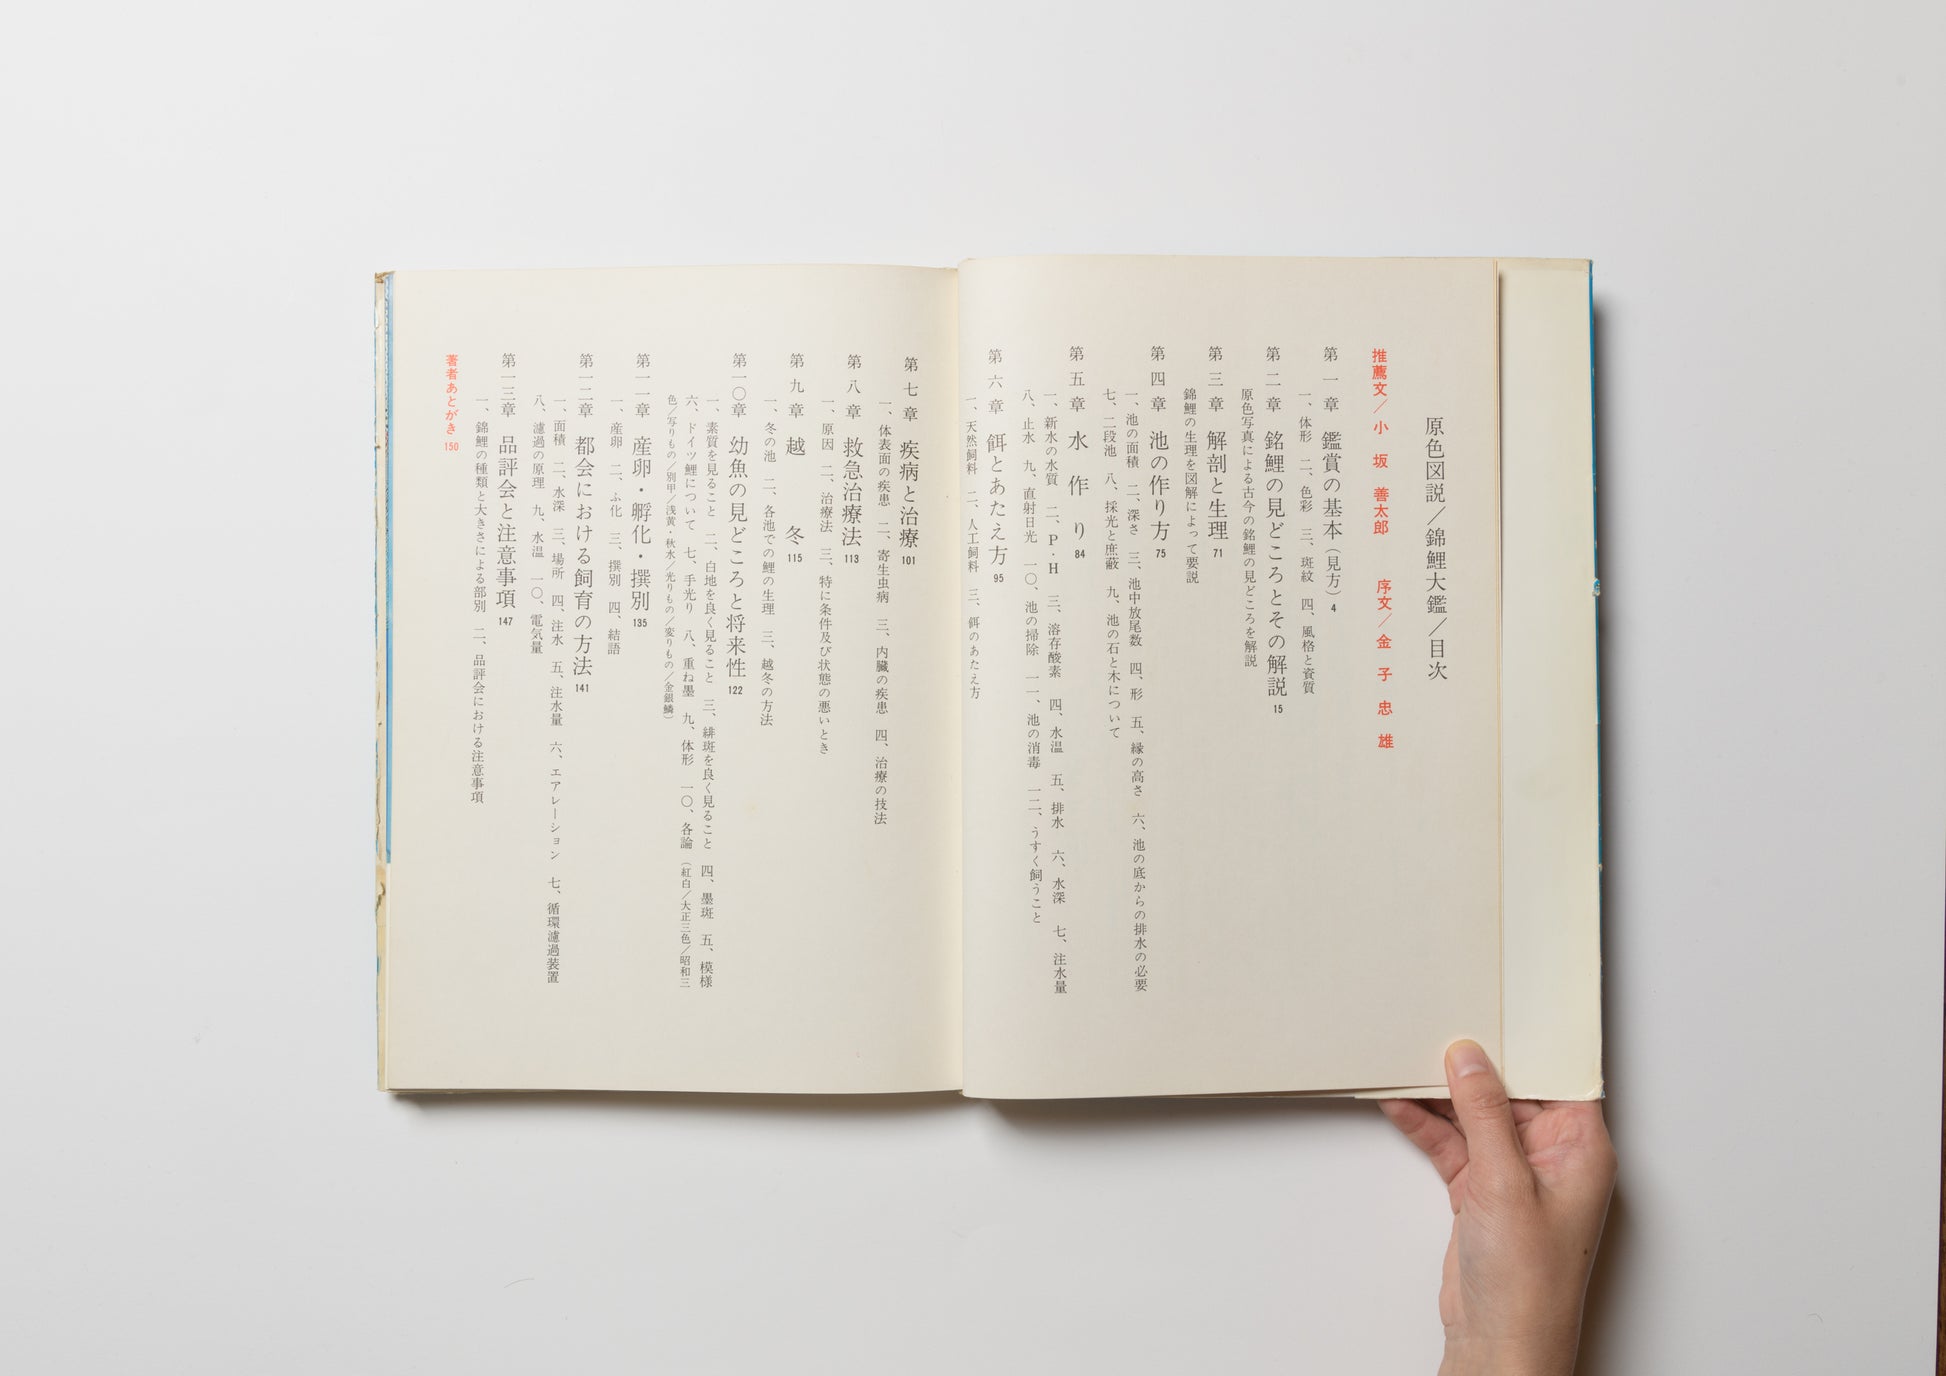 原色図説／錦鯉大鑑／目次
推薦文／小坂善太郎　序文／金子忠雄
第一章　鑑賞の基本（見方）4
一、体形　二、色彩　三、斑紋　四、風格と資質
第二章　銘鯉の見どころとその解説 15
原色写真による古今の銘鯉の見どころを解説
第三章　解剖と生理 71
錦鯉の生理を図解によって要説
第四章　池の作り方 75
一、池の面積　二、深さ　三、池中放尾数　四、形　五、縁の高さ　六、池の底からの排水の必要
七、二段池　八、採光と庶蔽　九、池の石と木について
第五章　水作り 84
一、新水の水質　二、P・H　三、溶存酸素　四、水温　五、排水　六、水深　七、注水量
八、止水　九、直射日光　一〇、池の掃除　一一、池の消毒　一二、うすく飼うこと
第六章　餌とあたえ方 95
一、天然飼料　二、人工飼料　三、餌のあたえ方
第七章　疾病と治療 101
一、体表面の疾患　二、寄生虫病　三、内臓の疾患　四、治療の技法
第八章　救急治療法 113
一、原因　二、治療法　三、特に条件及び状態の悪いとき
第九章　越冬 115
一、冬の池　二、各池での鯉の生理　三、越冬の方法
第一〇章　幼魚の見どころと将来性 122
一、素質を見ること　二、白地を良く見ること　三、緋斑を良く見ること　四、墨斑　五、模様
六、ドイツ鯉について　七、手光り　八、重ね墨　九、体形　一〇、各論（紅白／大正三色／昭和三
色／写りもの／別甲／浅黄・秋水／光りもの／変りもの／金銀鱗）
第一一章　産卵・孵化・撰別 135
一、産卵　二、ふ化　三、撰別　四、結語
第一二章　都会における飼育の方法 141
一、面積　二、水深　三、場所　四、注水　五、注水量　六、エアレーション　七、循環濾過装置
八、濾過の原理　九、水温　一〇、電気量
第一三章　品評会と注意事項 147
一、錦鯉の種類と大きさによる部別　二、品評会における注意事項
著者あとがき 150